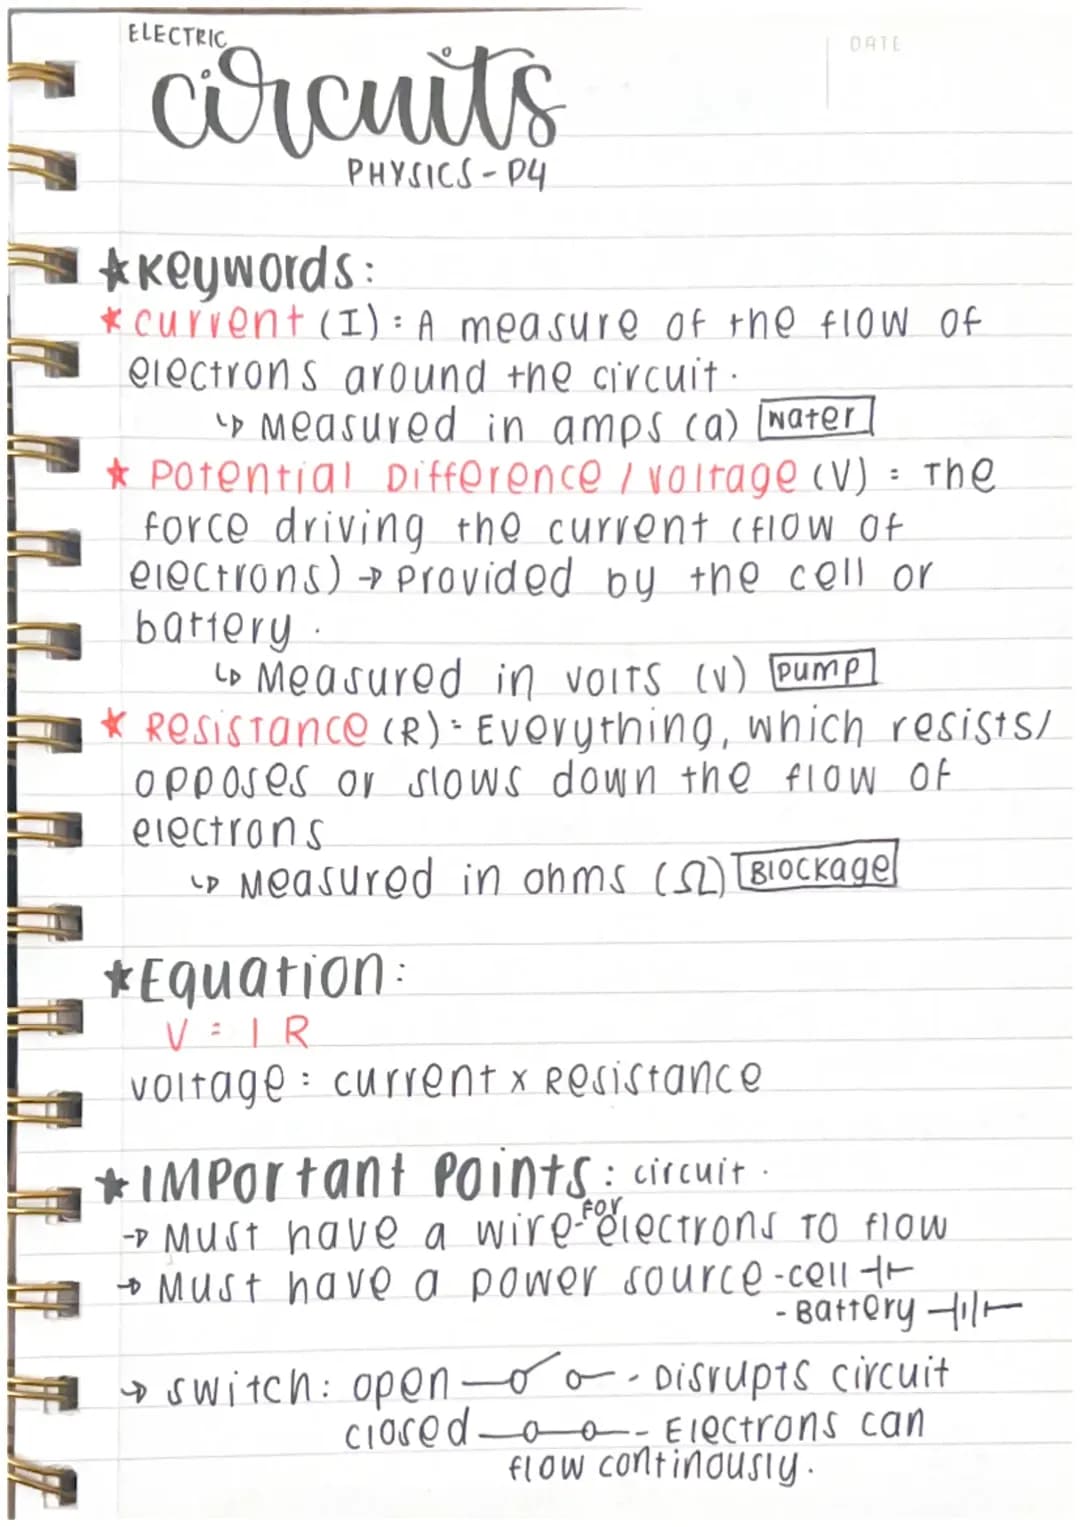 ELECTRIC
circuits
DATE
PHYSICS - P4
★Keywords:
★ current (I): A measure of the flow of
electrons around the circuit.
↳ Measured in amps (a) Water
★ Potential Difference / voltage (V) : The
force driving the current (flow of
electrons) → Provided by the cell or
battery.
↳ Measured in volts (v) pump
★ Resistance (R): Everything, which resists/
opposes or slows down the flow of
electrons
↳ Measured in ohms (Ω) Blockage
★Equation:
V = I R
voltage : current x Resistance
★IMPortant Points: circuit.
→ Must have a wire-for electrons to flow
→ Must have a power source -cell
- Battery
→ switch: open - Disrupts circuit
closed - Electrons can
flow continously.